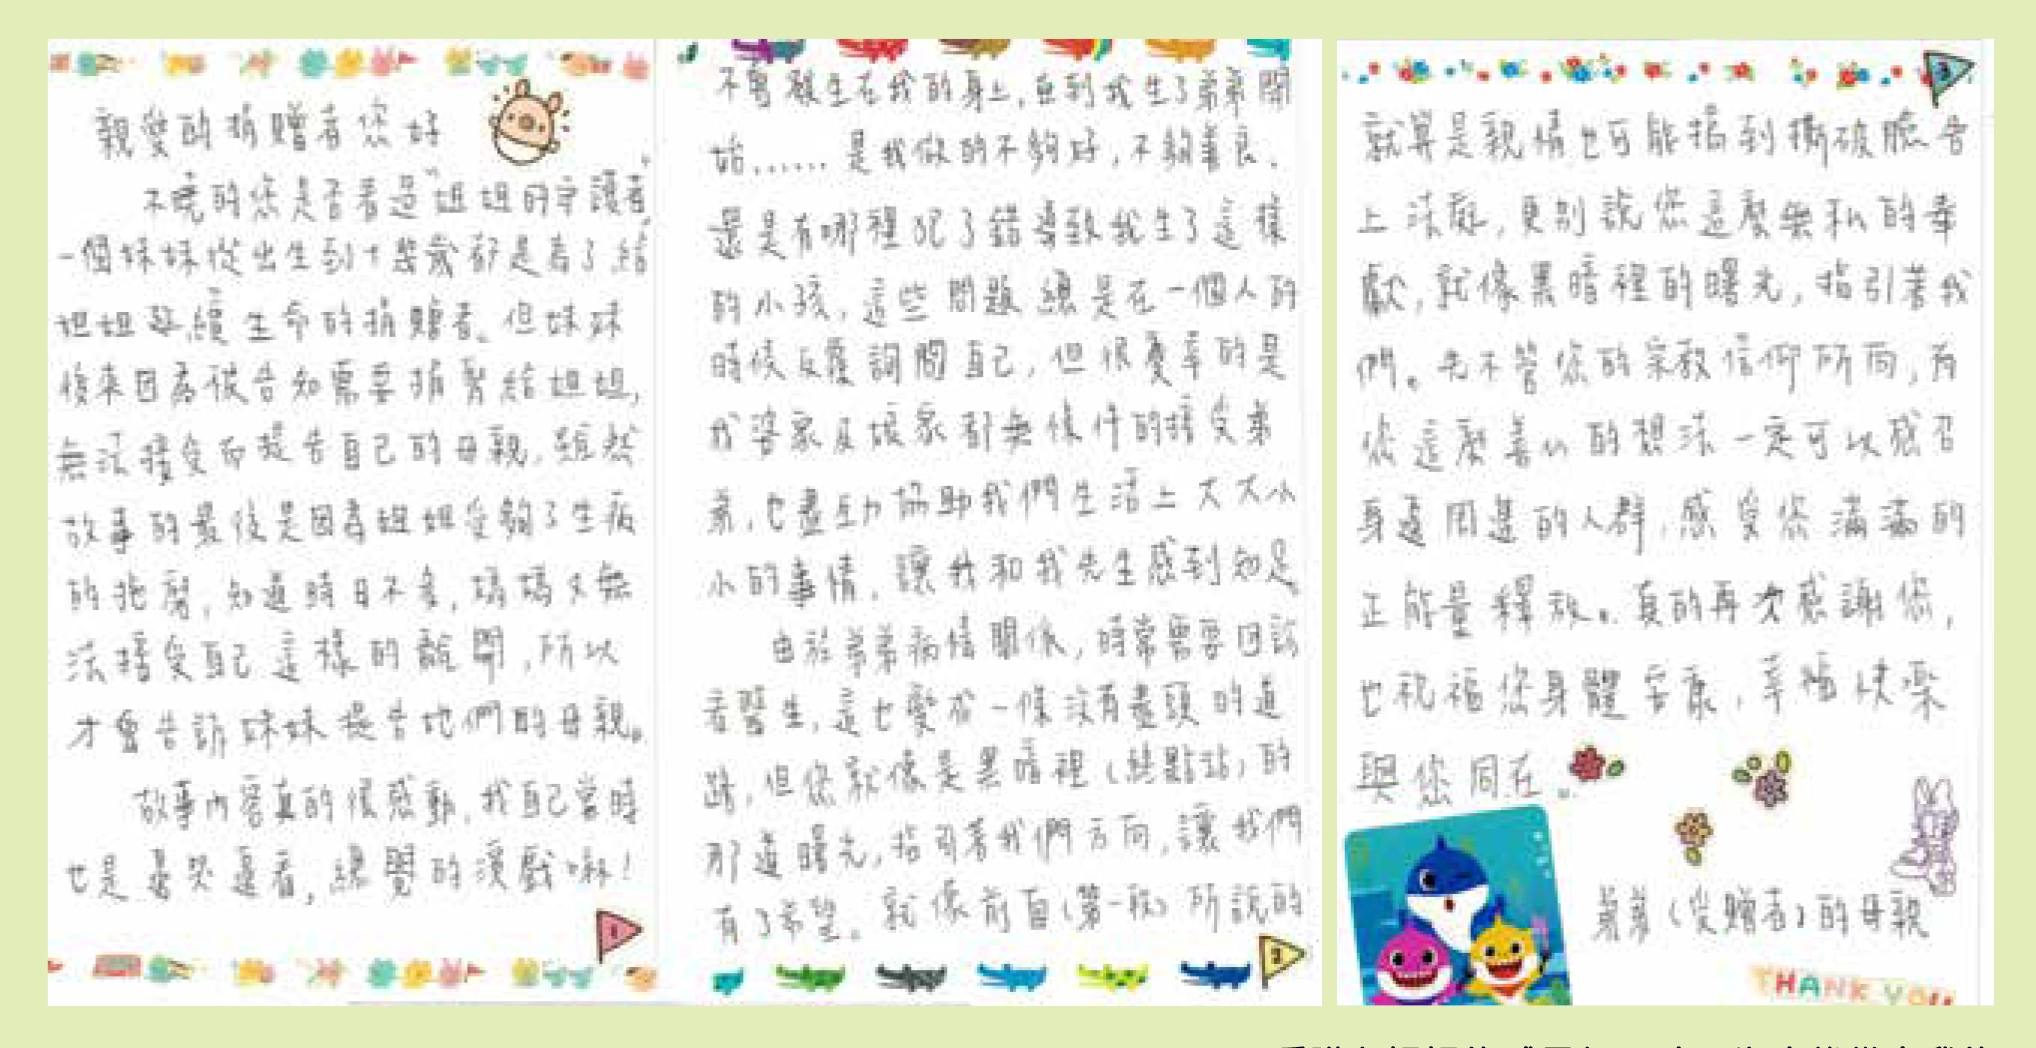 親愛的捐贈者您好
不曉的您是否看過"姐姐的守護者"
一個妹妹從出生到十幾歲都是為了給
姐姐延續生命的捐贈者。但妹妹
後來因為被告知需要捐腎給姐姐,
無法接受而提告自己的母親。雖然
故事的最後是因為姐姐受夠了生病
的拖磨,知道時日不多,媽媽又無
法接受自己這樣的離開,所以
才會告訴妹妹提告她們的母親。
故事內容真的很感動,我自己當時
也是邊哭邊看,總覺的演戲嘛!
1
不會發生在我的身上,直到我生了弟弟開
始......是我做的不夠好,不夠善良.
還是有哪裡犯了錯導致我生了這樣
的小孩,這些問題總是在一個人的
時候反覆詢問自己,但很慶幸的是
我婆家及娘家都無條件的接受弟
弟,也盡全力協助我們生活上大大小
小的事情,讓我和我先生感到知足。
由於弟弟病情關係,時常需要回診
看醫生,這也變成一條沒有盡頭的道
路,但您就像是黑暗裡(終點站)的
那道曙光,指引著我們方向,讓我們
有了希望。就像前面(第一段)所說的
2
3
就算是親情也可能搞到撕破臉告
上法庭,更別說您這麼無私的奉
獻,就像黑暗裡的曙光,指引著我
們。先不管您的宗教信仰所向,有
您這麼善心的想法一定可以感召
身邊周遭的人群,感受您滿滿的
正能量釋放。真的再次感謝您,
也祝福您身體安康,幸福快樂
與您同在。
弟弟(受贈者)的母親
THANK YOU